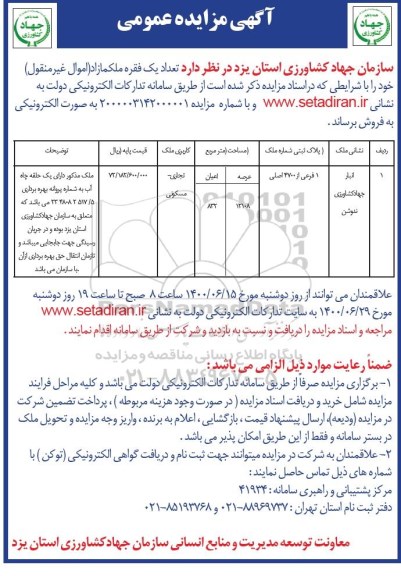 آگهی مزایده عمومی
جهاد کشاورزی
جهاد کشاورزی
سازمان جهاد کشاورزی استان یزد در نظر دارد تعداد یک فقره ملکمازاد(اموال غیرمنقول)
خود را با شرایطی که دراسناد مزایده ذکر شده است از طریق سامانه تدارکات الکترونیکی دولت به
نشانی www.setadiran.ir و با شماره مزایده ۲۰۰۰۰۰۳۱۴۲۰۰۰۰۰۱ به صورت الکترونیکی
به فروش برساند.
ردیف نشانی ملک ( پلاک ثبتی شماره ملک (مساحت)متر مربع کاربری ملک قیمت پایه (ریال توضیحات
۱ انبار جهادکشاورزی ندوشن ۱ فرعی از ۴۷۰۰ اصلی عرصه اعیان تجاری- مسکونی
ملک مذکور دارای یک حلقه چاه
آب به شماره پروانه بهره برداری
می باشد که
متعلق به سازمان جهادکشاورزی
استان یزد بوده و در جریان
رسیدگی جهت جابجایی میباشد و
سازمان انتقال حق بهره برداری ازآن
با سازمان می باشد.
علاقمندان می توانند از روز دوشنبه مورخ ۱۴۰۰/۰۶/۱۵ ساعت ۸ صبح تا ساعت ۱۹ روز دوشنبه
مورخ ۱۴۰۰/۰۶/۲۹ به سایت تدارکات الکترونیکی دولت به نشانی www.setadiran.ir
مراجعه و اسناد مزایده را دریافت و نسبت به بازدید و شرکت از طریق سامانه اقدام نمایند.
پایگاه اطلاع رسانی مناقصه و مزایده
ضمناً رعایت موارد ذیل الزامی می باشد:
۱- برگزاری مزایده صرفا از طریق سامانه تدارکات الکترونیکی دولت می باشد و کلیه مراحل فرایند
مزایده شامل خرید و دریافت اسناد مزایده ( در صورت وجود هزینه مربوطه ) ، پرداخت تضمین شرکت
در مزایده (ودیعه)، ارسال پیشنهاد قیمت ، بازگشایی ، اعلام به برنده ، واریز وجه مزایده و تحویل ملک
در بستر سامانه و فقط از این طریق امکان پذیر می باشد.
۲- علاقمندان به شرکت در مزایده میتوانند جهت ثبت نام و دریافت گواهی الکترونیکی (توکن ) با
شماره های ذیل تماس حاصل نمایند:
مرکز پشتیبانی و راهبری سامانه : ۴۱۹۳۴
دفتر ثبت نام استان تهران : ۸۸۹۶۹۷۳۷-۰۲۱ و ۸۵۱۹۳۷۶۸-۰۲۱
معاونت توسعه مدیریت و منابع انسانی سازمان جهادکشاورزی استان یزد